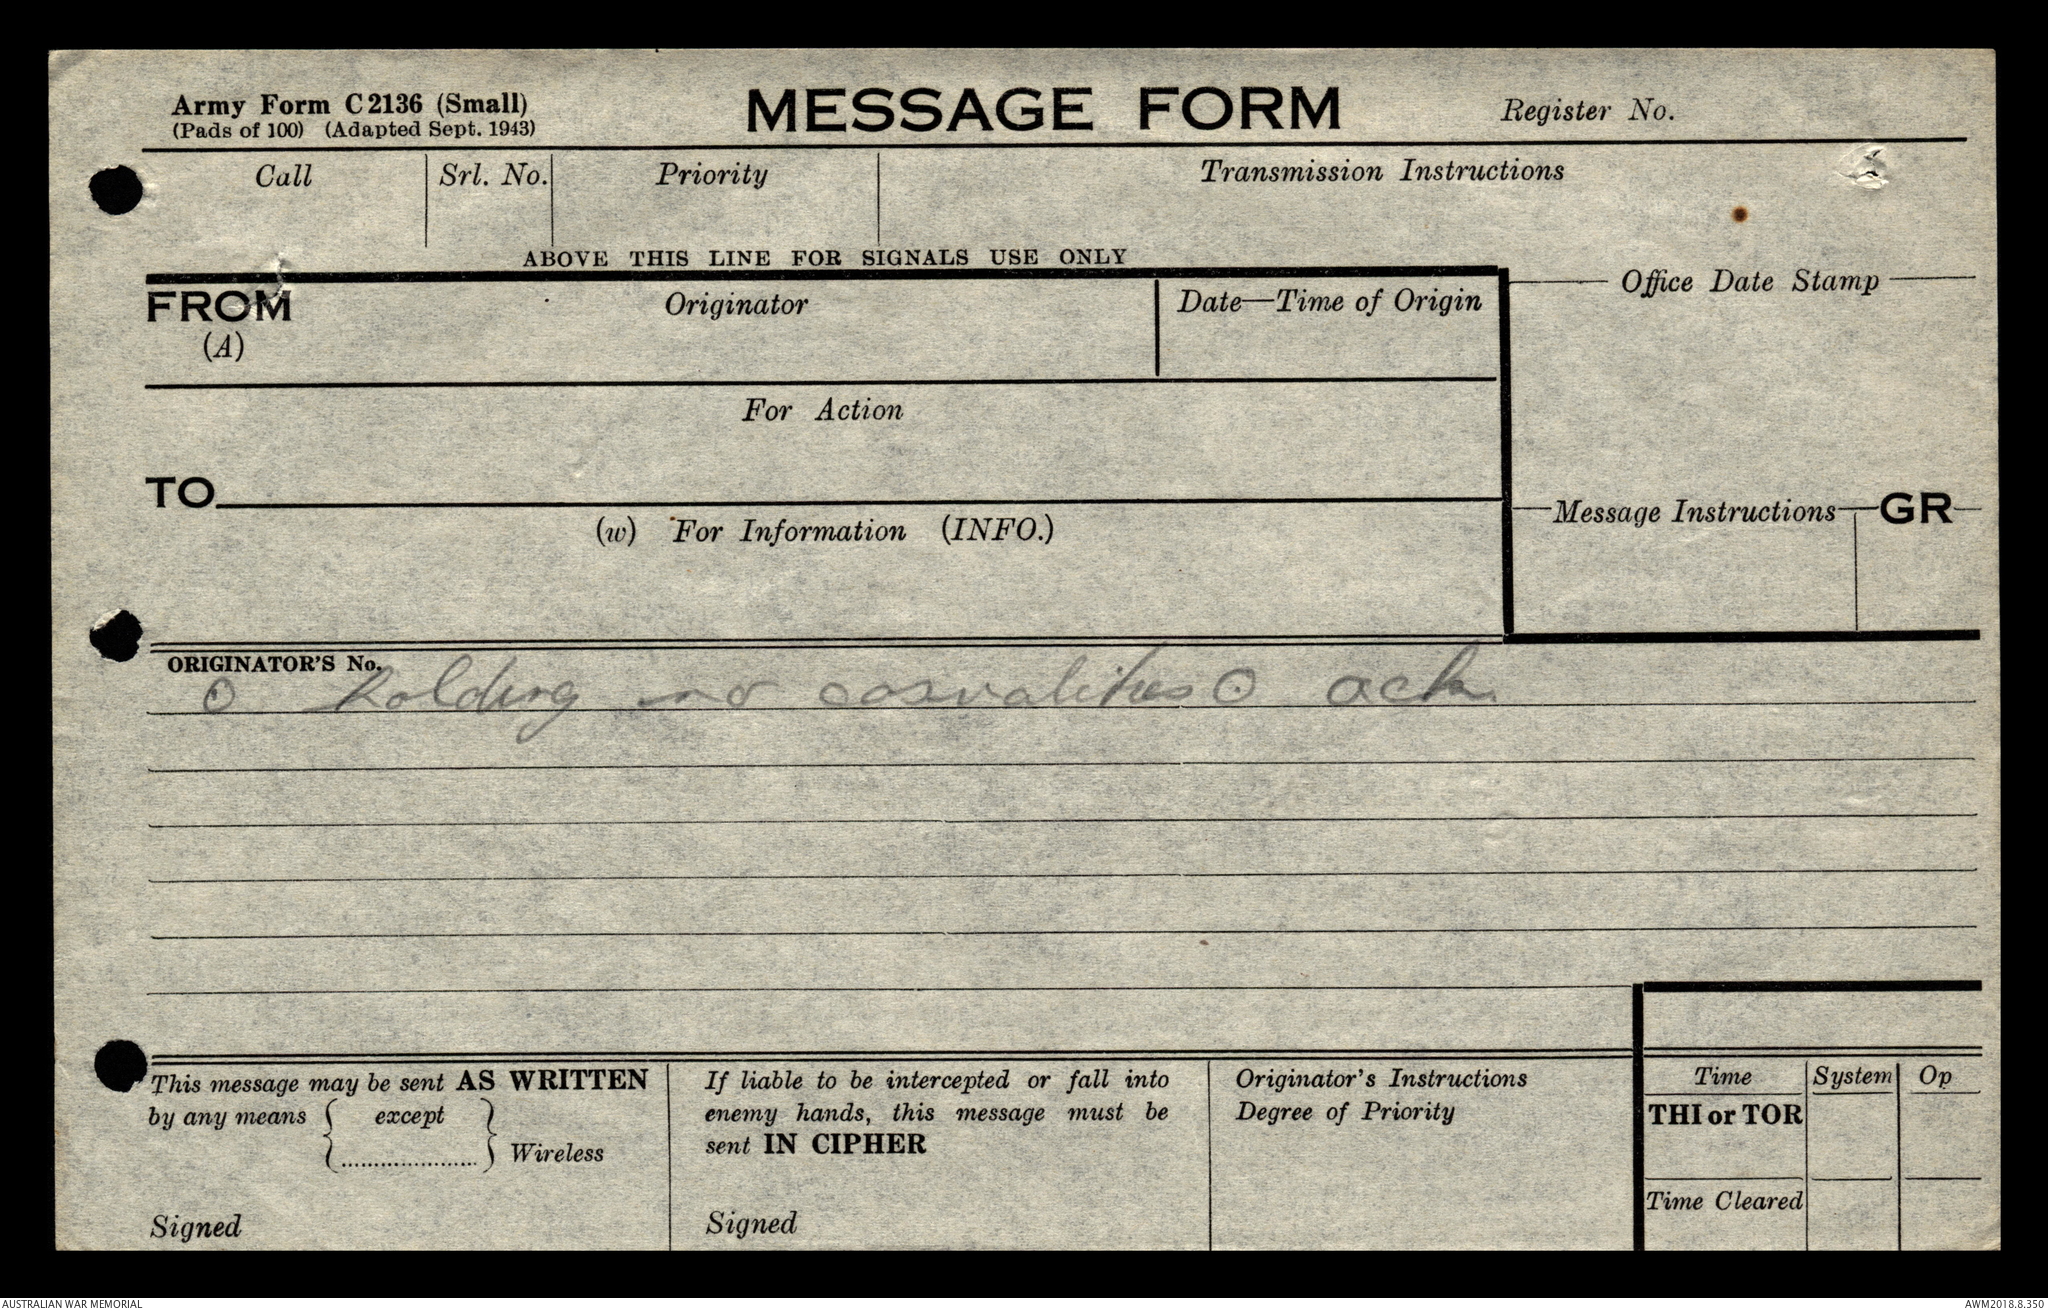 Army Form C 2136 (Small)
(Pads of 100) (Adapted Sept. 1943)
MESSAGE FORM
Register No.
Call
Srl. No.
Priority
Transmission Instructions
ABOVE THIS LINE FOR SIGNALS USE ONLY
FROM
(A)
Originator
Date—Time of Origin
Office Date Stamp
For Action
TO
(w) For Information (INFO.)
Message Instructions
GR
ORIGINATOR'S No.
⊙ holding no casualities ⊙ ack
This message may be sent AS WRITTEN
by any means { except
...................... } Wireless
Signed
If liable to be intercepted or fall into
enemy hands, this message must be
sent IN CIPHER
Signed
Originator's Instructions
Degree of Priority
Time
System
Op
THI or TOR
Time Cleared
AUSTRALIAN WAR MEMORIAL
AWM2018.8.350